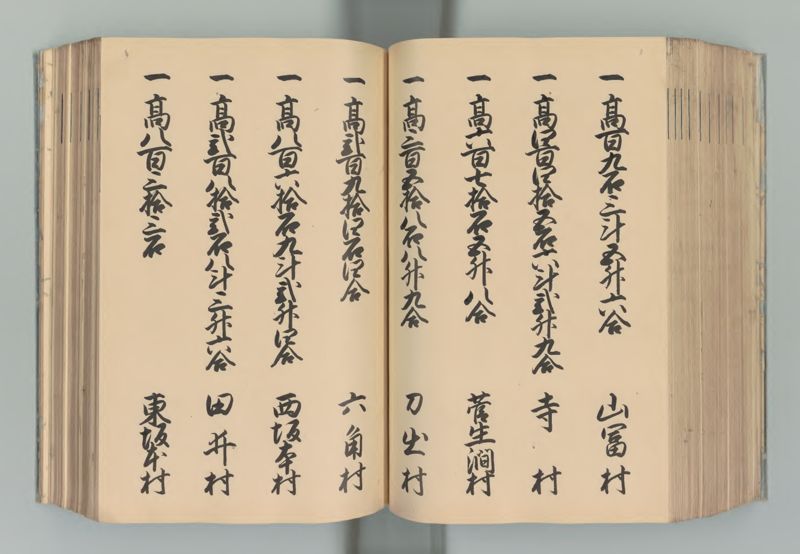 一 高百九石三斗五升六合 山冨村
一 高四百四拾五石六斗弐升九合 寺村
一 高六百七拾石五升八合 菅生澗村
一 高三百五拾八石八升九合 刀出村
一 高弐百九拾四石四合 六角村
一 高八百六拾石九斗弐升四合 西坂本村
一 高弐百八拾弐石八斗三升六合 田井村
一 高八百三拾三石 東坂本村